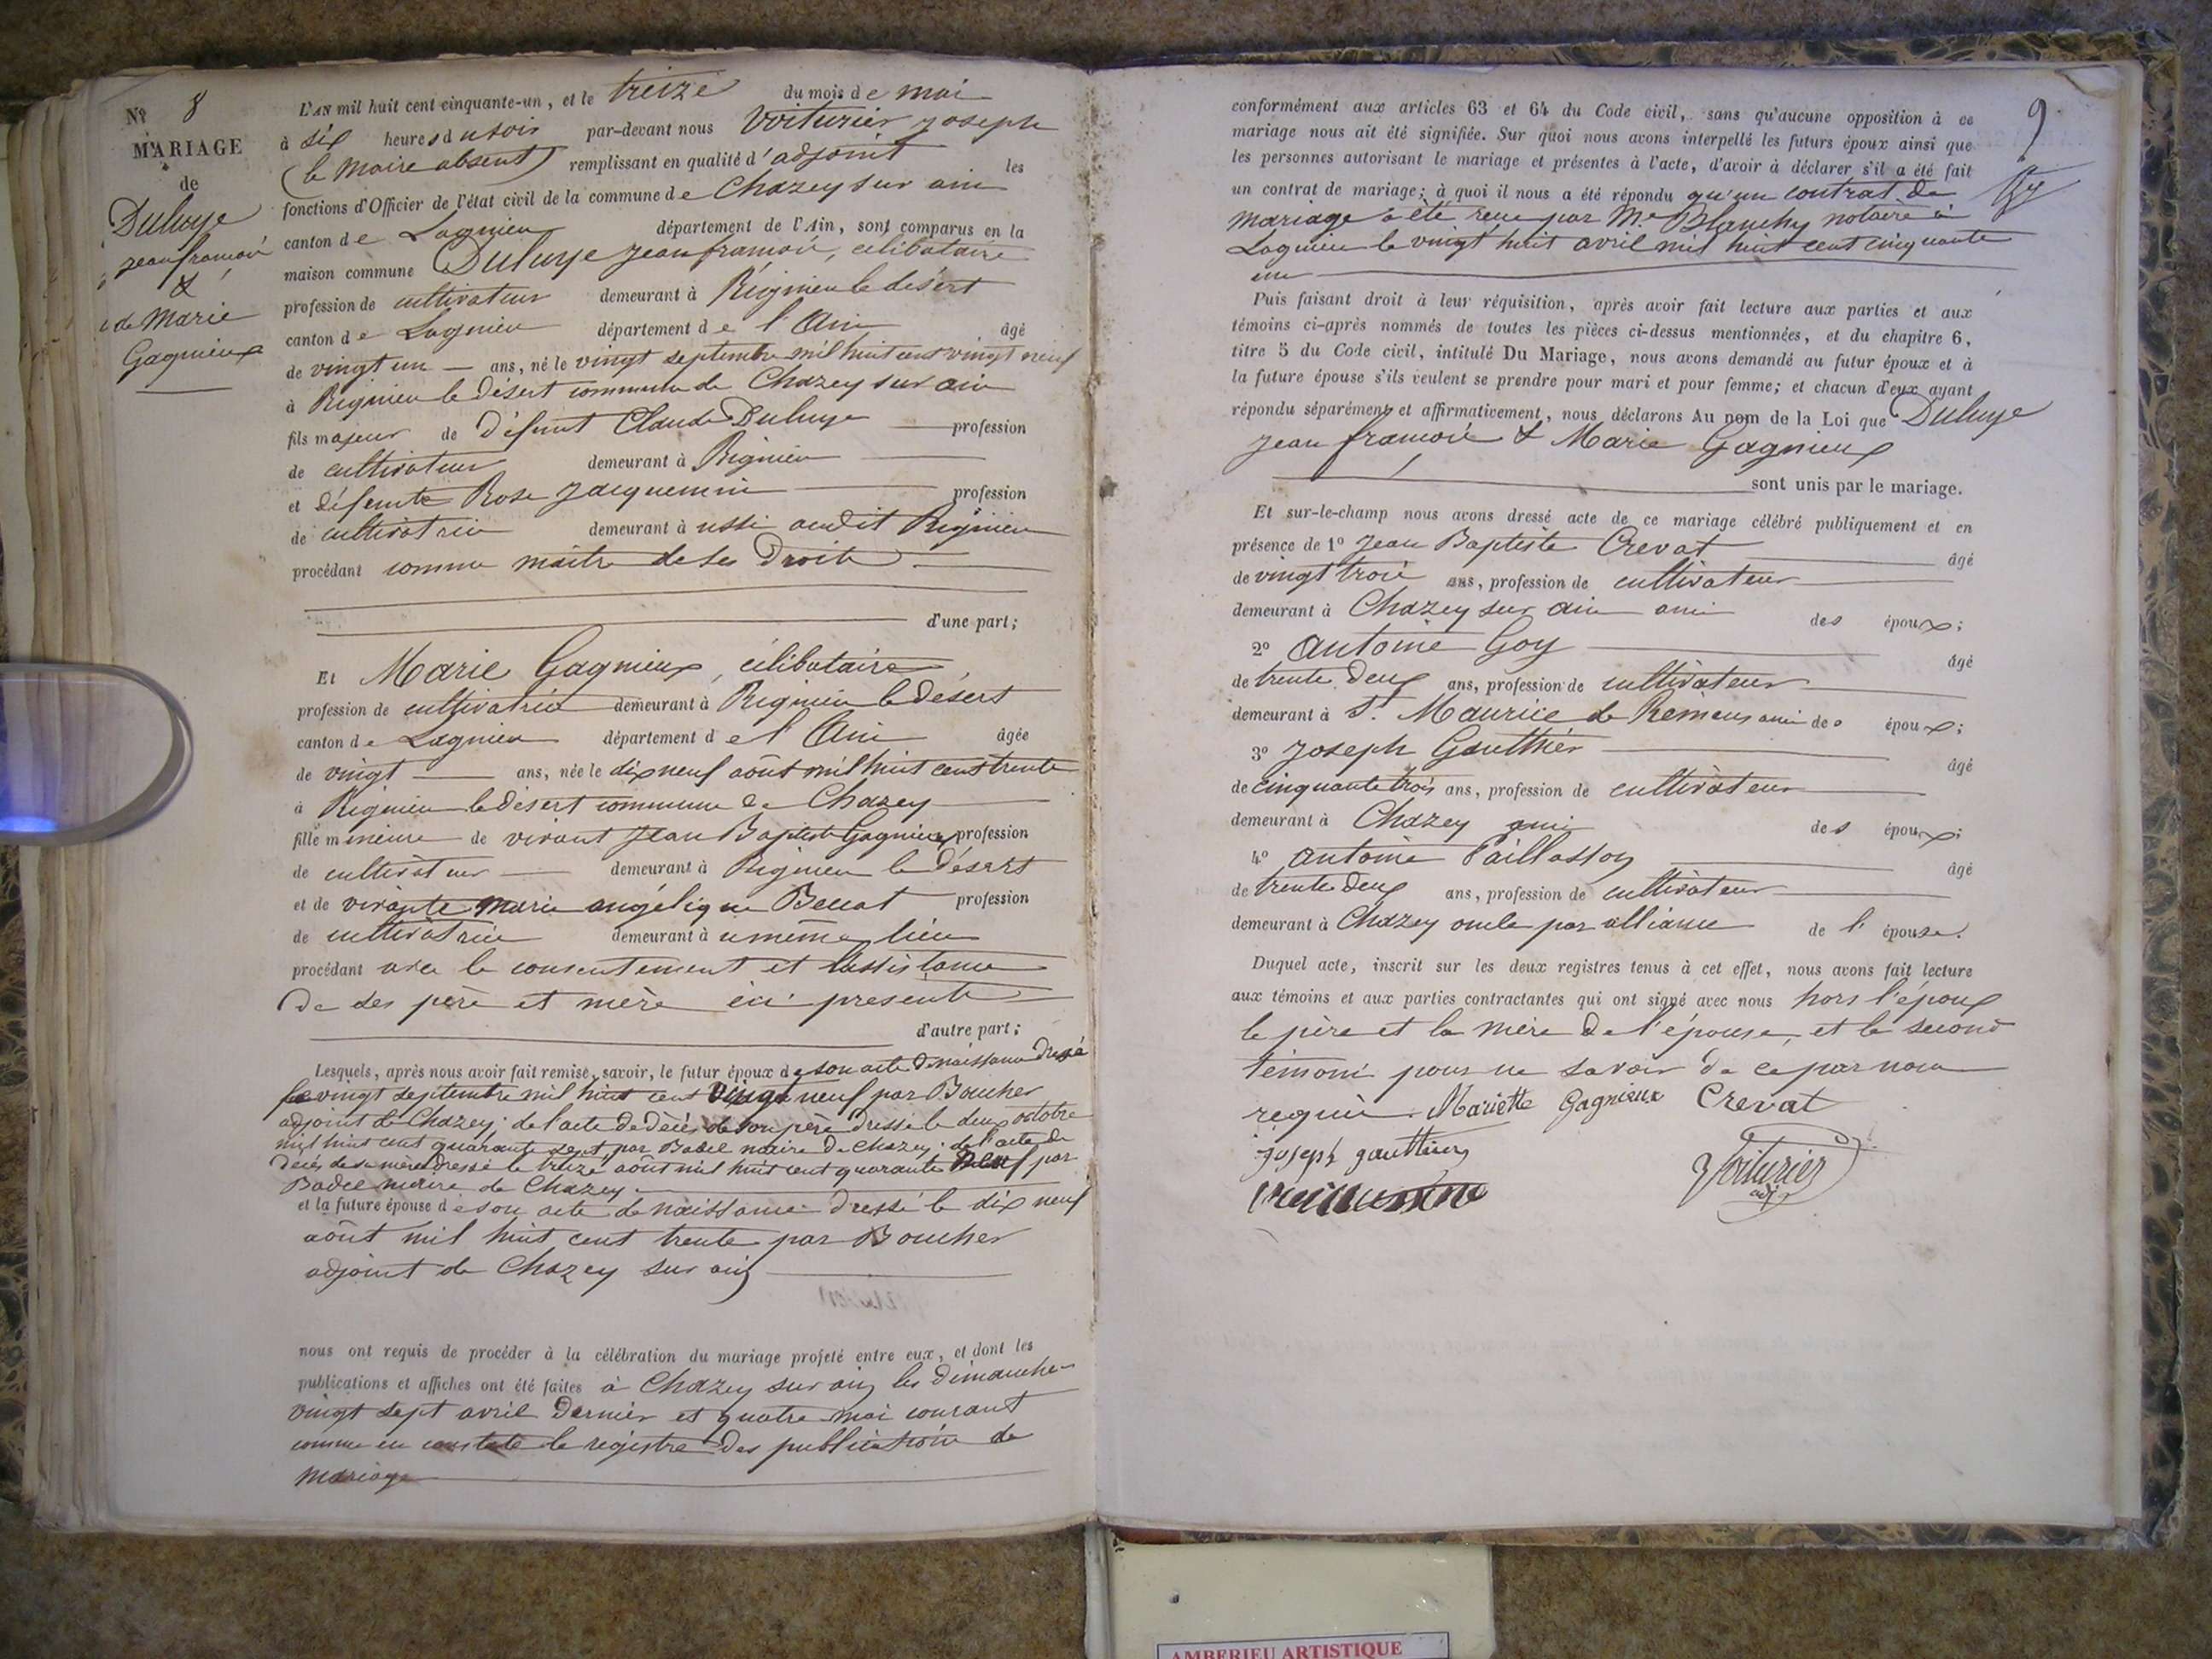 Nº 8
MARIAGE
de
Duluye
jean françois
&
de Marie
Gagnieux
L'AN mil huit cent cinquante-un, et le treize du mois de mai
à six heures du soir par-devant nous Voiturier joseph
(le Maire absent) remplissant en qualité d'adjoint les
fonctions d'Officier de l'état civil de la commune de Chazey sur ain
canton de Lagnieu département de l'Ain, sont comparus en la
maison commune Duluye jean françois, célibataire
profession de cultivateur demeurant à Rignieu le désert
canton de Lagnieu département de l'Ain âgé
de vingt un ans, né le vingt septembre mil huit cent vingt neuf
à Rignieu le Désert commune de Chazey sur ain
fils majeur de défunt Claude Duluye profession
de cultivateur demeurant à Rignieu
et défunte Rose jacquemin profession
de cultivatrice demeurant à ussi audit Rignieu
procédant comme maitre de ses Droits
d'une part;
Et Marie Gagnieux, célibataire
profession de cultivatrice demeurant à Rignieu le désert
canton de Lagnieu département de l'Ain âgée
de vingt ans, née le dix neuf août mil huit cent trente
à Rignieu le désert commune de Chazey
fille mineure de vivant Jean Baptiste Gagnieux profession
de cultivateur demeurant à Rignieu le Désert
et de vivante marie angélique profession
de cultivatrice demeurant à u même lieu
procédant avec le consentement et l'assistance
de ses père et mère ici présents
d'autre part;
Lesquels, après nous avoir fait remise, savoir, le futur époux de son acte de naissance dressé
le vingt septembre mil huit cent vingt neuf par Boucher
adjoint de Chazey; de l'acte de décès de son père dressé le deux octobre
mil huit cent quarante sept, par Badel maire de Chazey; de l'acte de
décès de sa mère dressé le treize août mil huit cent quarante neuf par
Badel maire de Chazey.
et la future épouse de son acte de naissance dressé le dix neuf
août mil huit cent trente par Boucher
adjoint de Chazey sur ain
nous ont requis de procéder à la célébration du mariage projeté entre eux, et dont les
publications et affiches ont été faites à Chazey sur ain les dimanches
vingt sept avril dernier et quatre mai courant
comme en constate le registre des publications de
mariage
9
conformément aux articles 63 et 64 du Code civil, sans qu'aucune opposition à ce
mariage nous ait été signifiée. Sur quoi nous avons interpellé les futurs époux ainsi que
les personnes autorisant le mariage et présentes à l'acte, d'avoir à déclarer s'il a été fait
un contrat de mariage; à quoi il nous a été répondu qu'un contrat de
mariage a été reçu par Me Blanchy notaire à
Lagnieu le vingt huit avril mil huit cent cinquante
un
Puis faisant droit à leur réquisition, après avoir fait lecture aux parties et aux
témoins ci-après nommés de toutes les pièces ci-dessus mentionnées, et du chapitre 6,
titre 5 du Code civil, intitulé Du Mariage, nous avons demandé au futur époux et à
la future épouse s'ils veulent se prendre pour mari et pour femme; et chacun d'eux ayant
répondu séparément et affirmativement, nous déclarons Au nom de la Loi que Duluye
jean françois & Marie Gagnieux
sont unis par le mariage.
Et sur-le-champ nous avons dressé acte de ce mariage célébré publiquement et en
présence de 1º Jean Baptiste Crevat âgé
de vingt trois ans, profession de cultivateur
demeurant à Chazey sur ain ami des époux;
2º Antoine Goy âgé
de trente deux ans, profession de cultivateur
demeurant à St Maurice de Remens ami des époux;
3º Joseph Gauthier âgé
de cinquante trois ans, profession de cultivateur
demeurant à Chazey ami des époux;
4º Antoine Paillasson âgé
de trente deux ans, profession de cultivateur
demeurant à Chazey oncle par alliance de l'épouse.
Duquel acte, inscrit sur les deux registres tenus à cet effet, nous avons fait lecture
aux témoins et aux parties contractantes qui ont signé avec nous hors l'époux
le père et la mère de l'épouse, et le second
témoin pour ne savoir de ce par nous
requis. Mariette Gagnieux Crevat
joseph gauthier
Voiturier
adj
AMBERIEU ARTISTIQUE